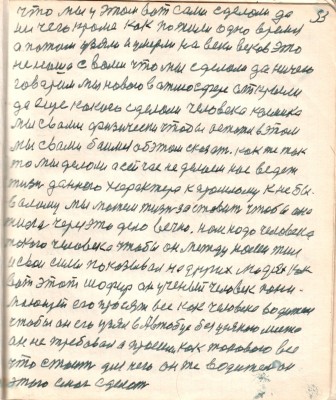 что мы у этом вот сами сделали да
ни чего кроме как пожили одно время
а потом взяли и умерли на веки веков это
не наше с вами что мы сделали да ничего
говорим мы нового в атмосфере открыли
да еще какого сделали человека
мы с вами физически чтобы в этом
мы с вами об этом сказать. как же так
то мы делали а сейчас не делаем нас ведет
жизнь данного характера к хорошему к не бы-
валому мы можем жизнь заставить чтобы она
через это дело вечно. нам надо человека
такого человека чтобы он между нами жил
и свои силы показывал на других людях как
вот этот шофер он ученый человек
его просят все как человека водителя
чтобы он его взял в Автобус без
он не требовал а просил как такового все
что стоит для него он же водитель он
этого смог сделать
53